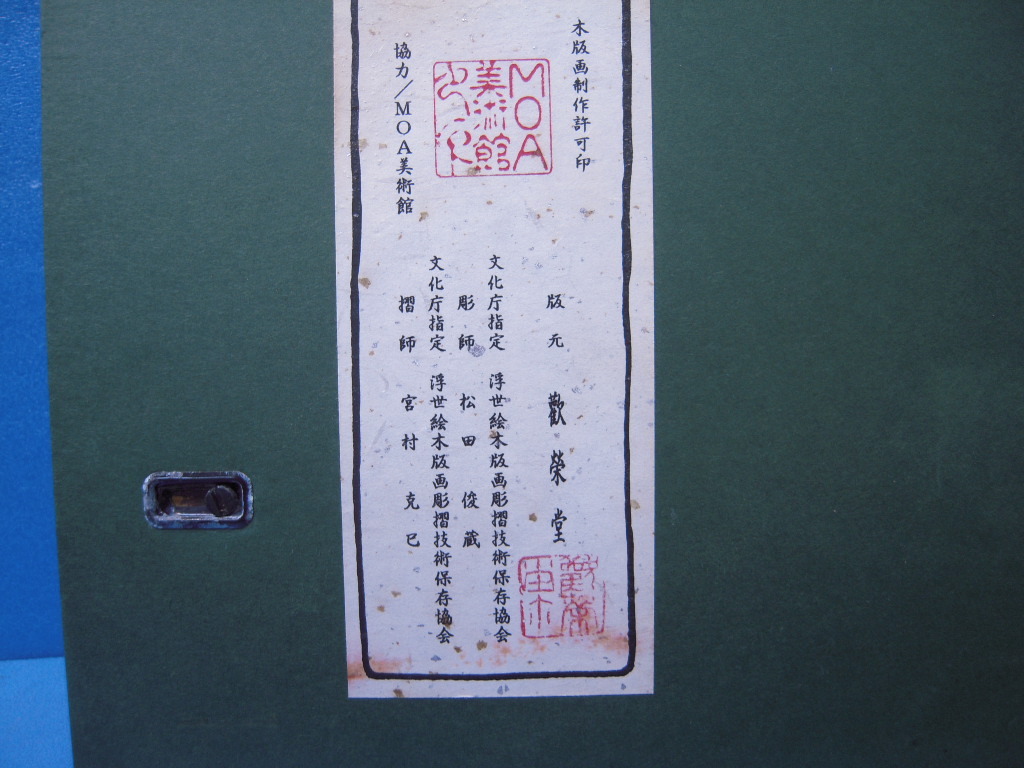 木版画制作許可印
MOA
美術館
之印
協力／MOA美術館
版元 歡榮堂
文化庁指定 浮世絵木版画彫摺技術保存協会
彫師 松田俊蔵
文化庁指定 浮世絵木版画彫摺技術保存協会
摺師 宮村克巳